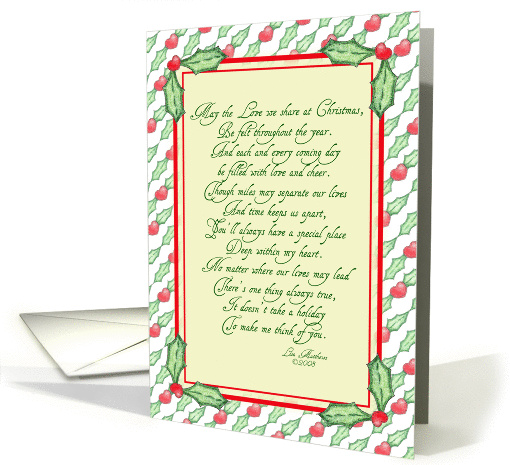 May the Love we share at Christmas,
Be felt throughout the year.
And each and every coming day
be filled with love and cheer.
Though miles may separate our lives
And time keeps us apart,
You'll always have a special place
Deep within my heart.
No matter where our lives may lead
There's one thing always true,
It doesn't take a holiday
To make me think of you.
©2008